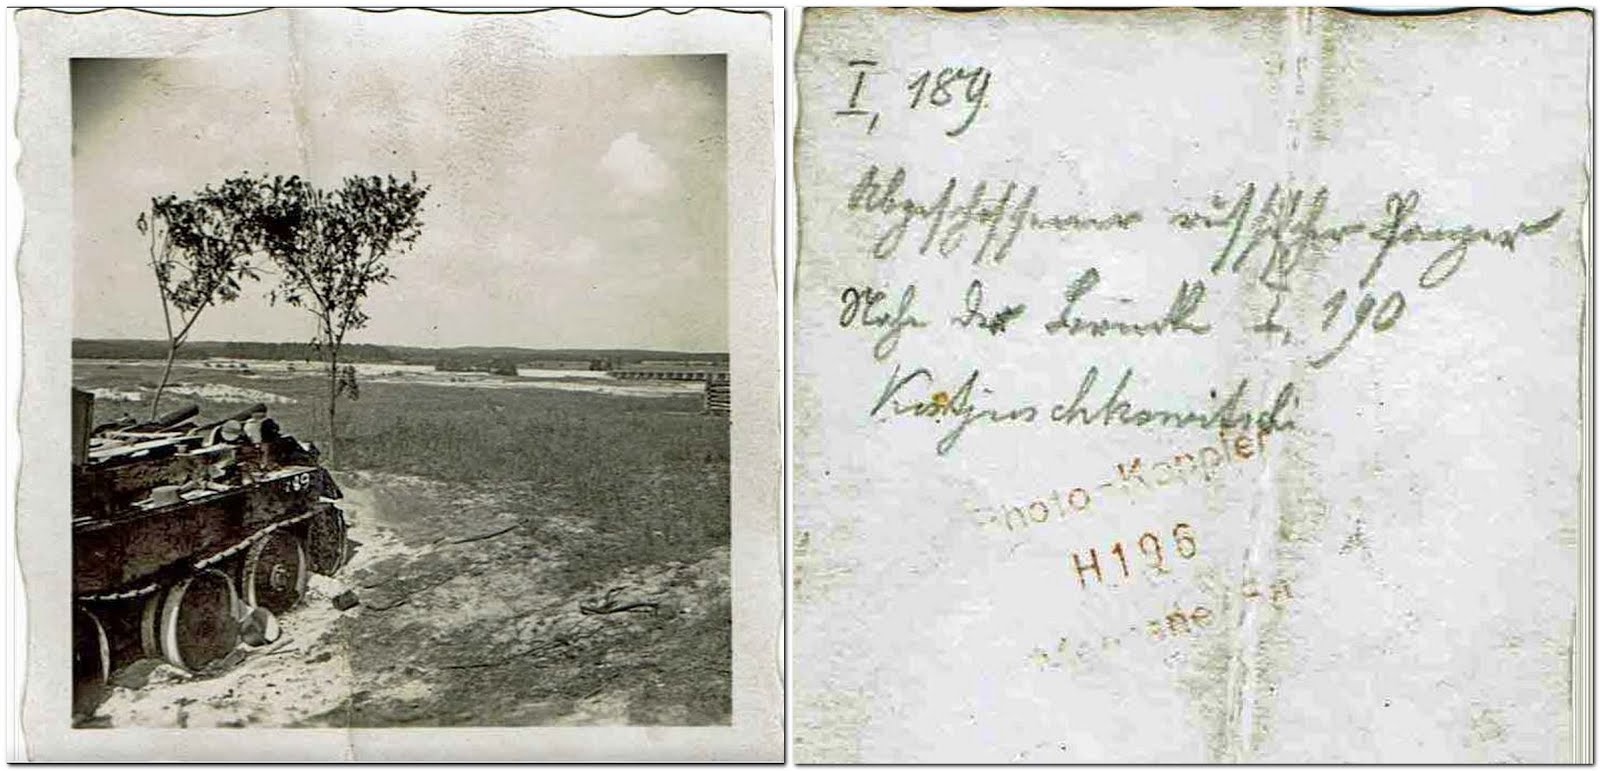 189
I, 189
Abgeschossener russischer Panzer
Nahe der Brücke I, 190
Kostjuschkowitschi
Photo-Kanpler
H196